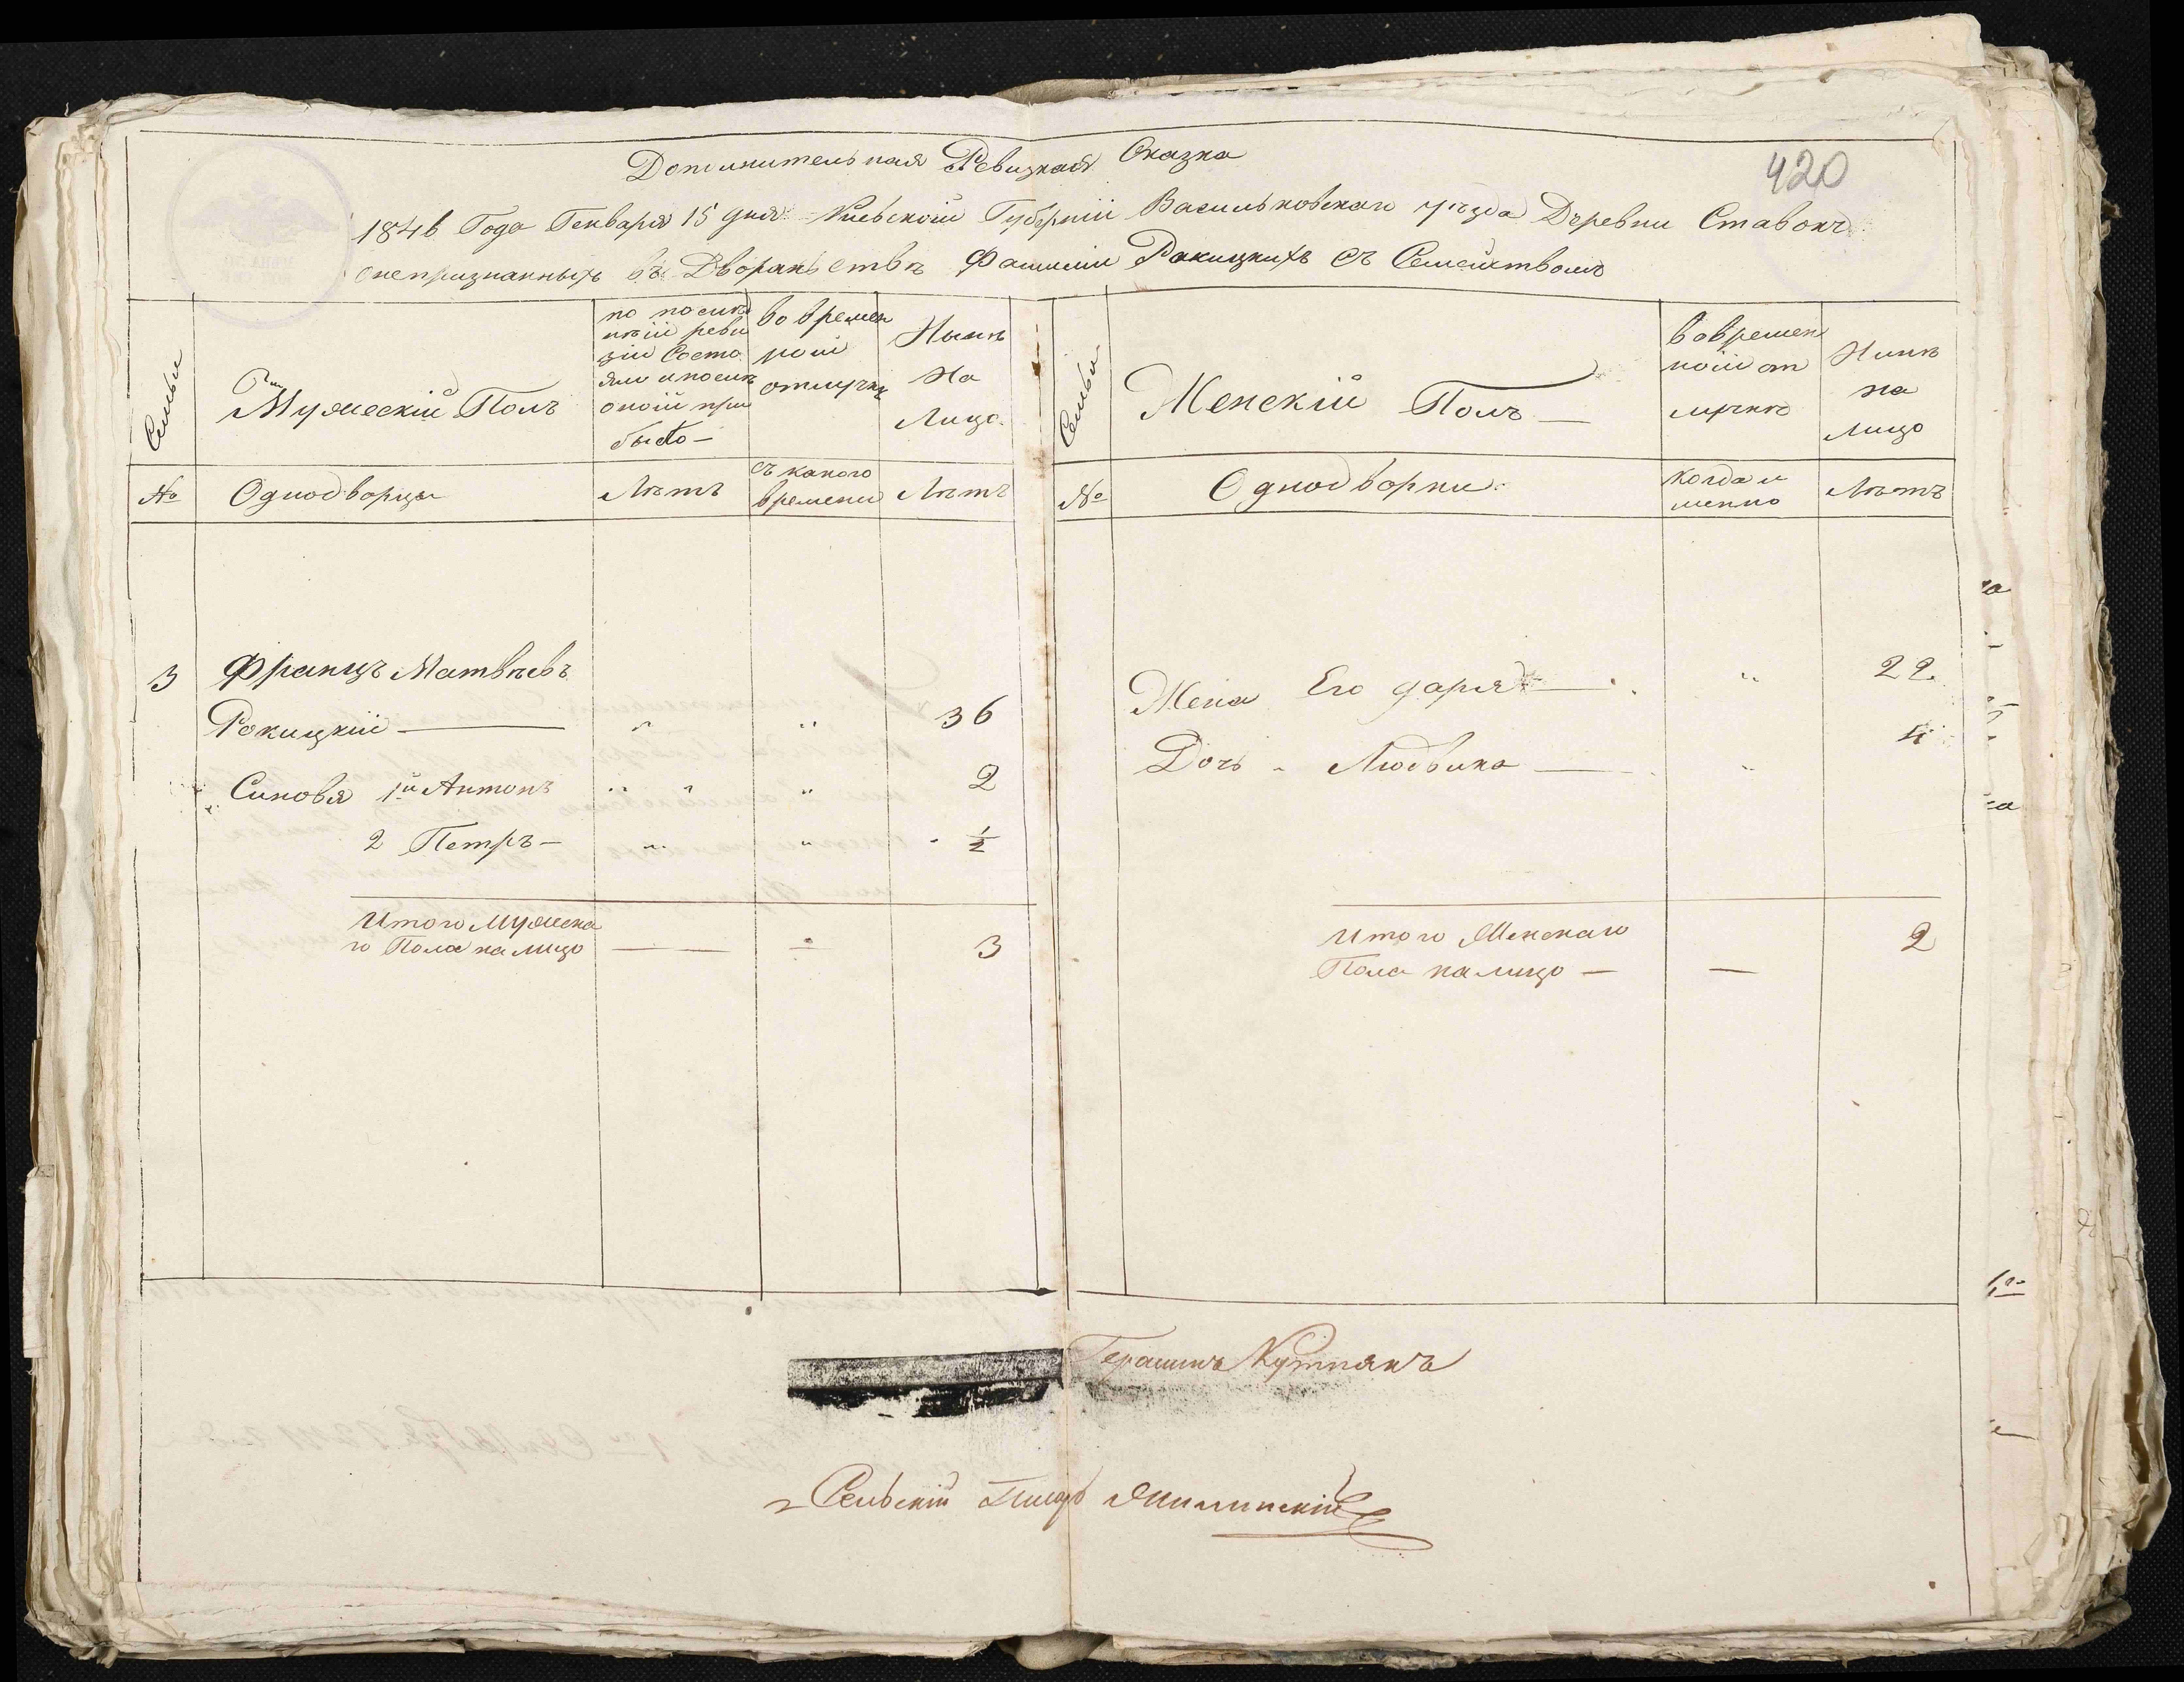 Дополнительная Ревизкая Сказка
420
1846 Года Генваря 15 дня Киевской Губернии Васильковскаго уезда Деревни Ставокъ
онепризнанныхъ въ Дворянствѣ Фамилии Ракицкихъ съ Семействомъ
Семьи
Мужескій Полъ
по послѣд
нѣй реви
зіи Состо
яло и послѣ
оной при
было —
во времен
ной
отлучкѣ
Нынѣ
На
Лицо
Семьи
Женскій Полъ —
вовремен
ной от
лучкѣ
Нинѣ
на
лицо
№
Однодворцы
Лѣтъ
съ какого
времени
Лѣтъ
№
Однодворки
когда и
менно
Лѣтъ
3 Францъ Матвѣевъ
Рокицкій — " " 36
Жена Его дарья — " 22
Синовя 1й Антонъ " " 2
Дочь Людвика — " 4
2 Петръ — " " ½
Итого Мужска
го Пола на лицо — — 3
Итого Женскаго
Пола налицо — — 2
Герасимъ
Сельскій Писарь